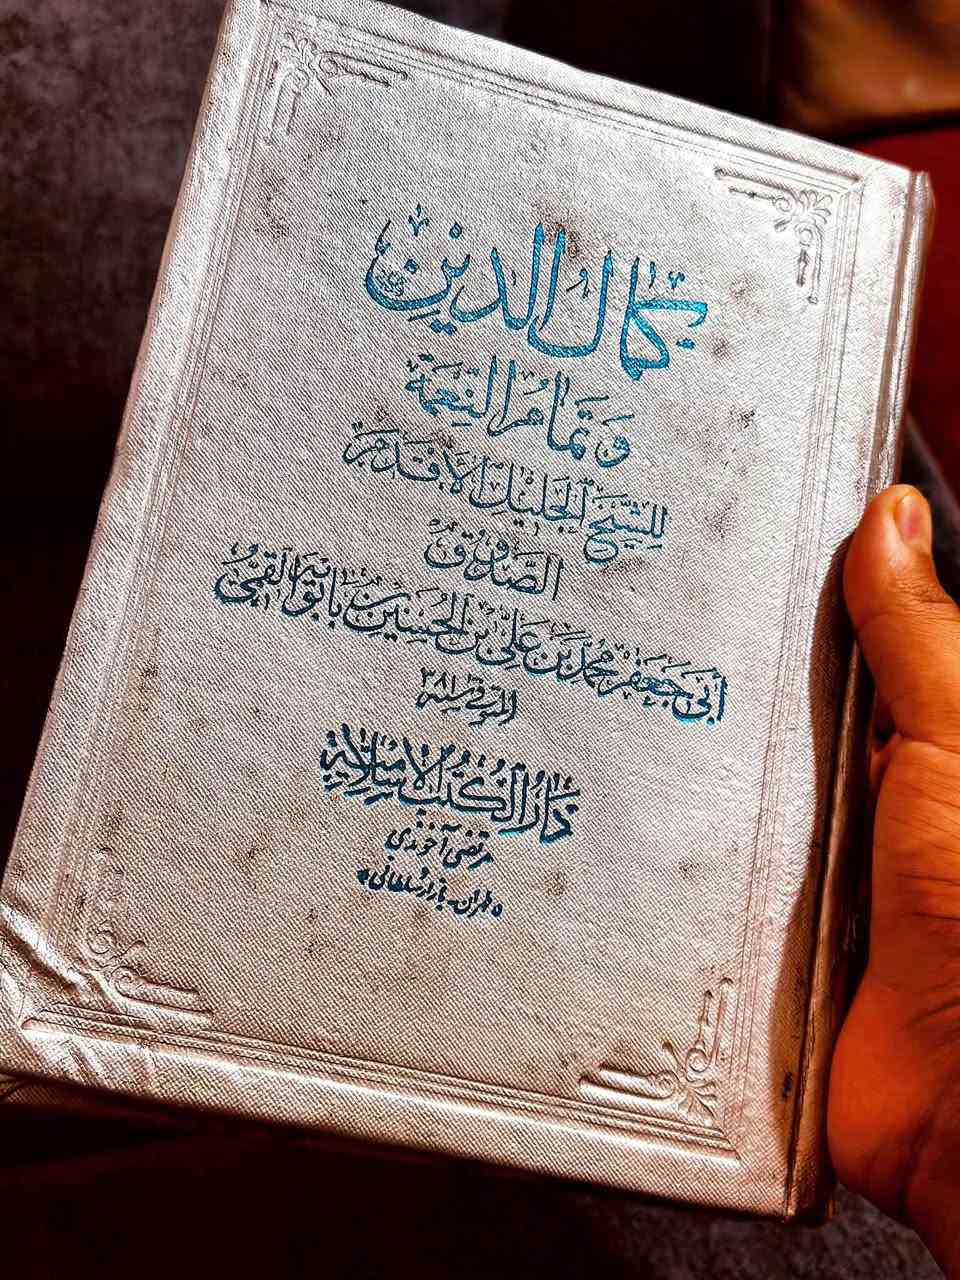 كمال الدين
وَتَمَامُ النِّعْمَة
لِلشَّيْخِ الْجَلِيْلِ الْأَقْدَمِ
الصَّدُوْقِ
أَبِي جَعْفَرٍ مُحَمَّدِ بْنِ عَلِيِّ بْنِ الْحُسَيْنِ بْنِ بَابَوَيْهِ الْقُمِّيِّ
المتوفى سنة ٣٨١
دَارُ الْكُتُبِ الْإِسْلَامِيَّة
مرتضى آخوندى
طهران - بازار سلطانى